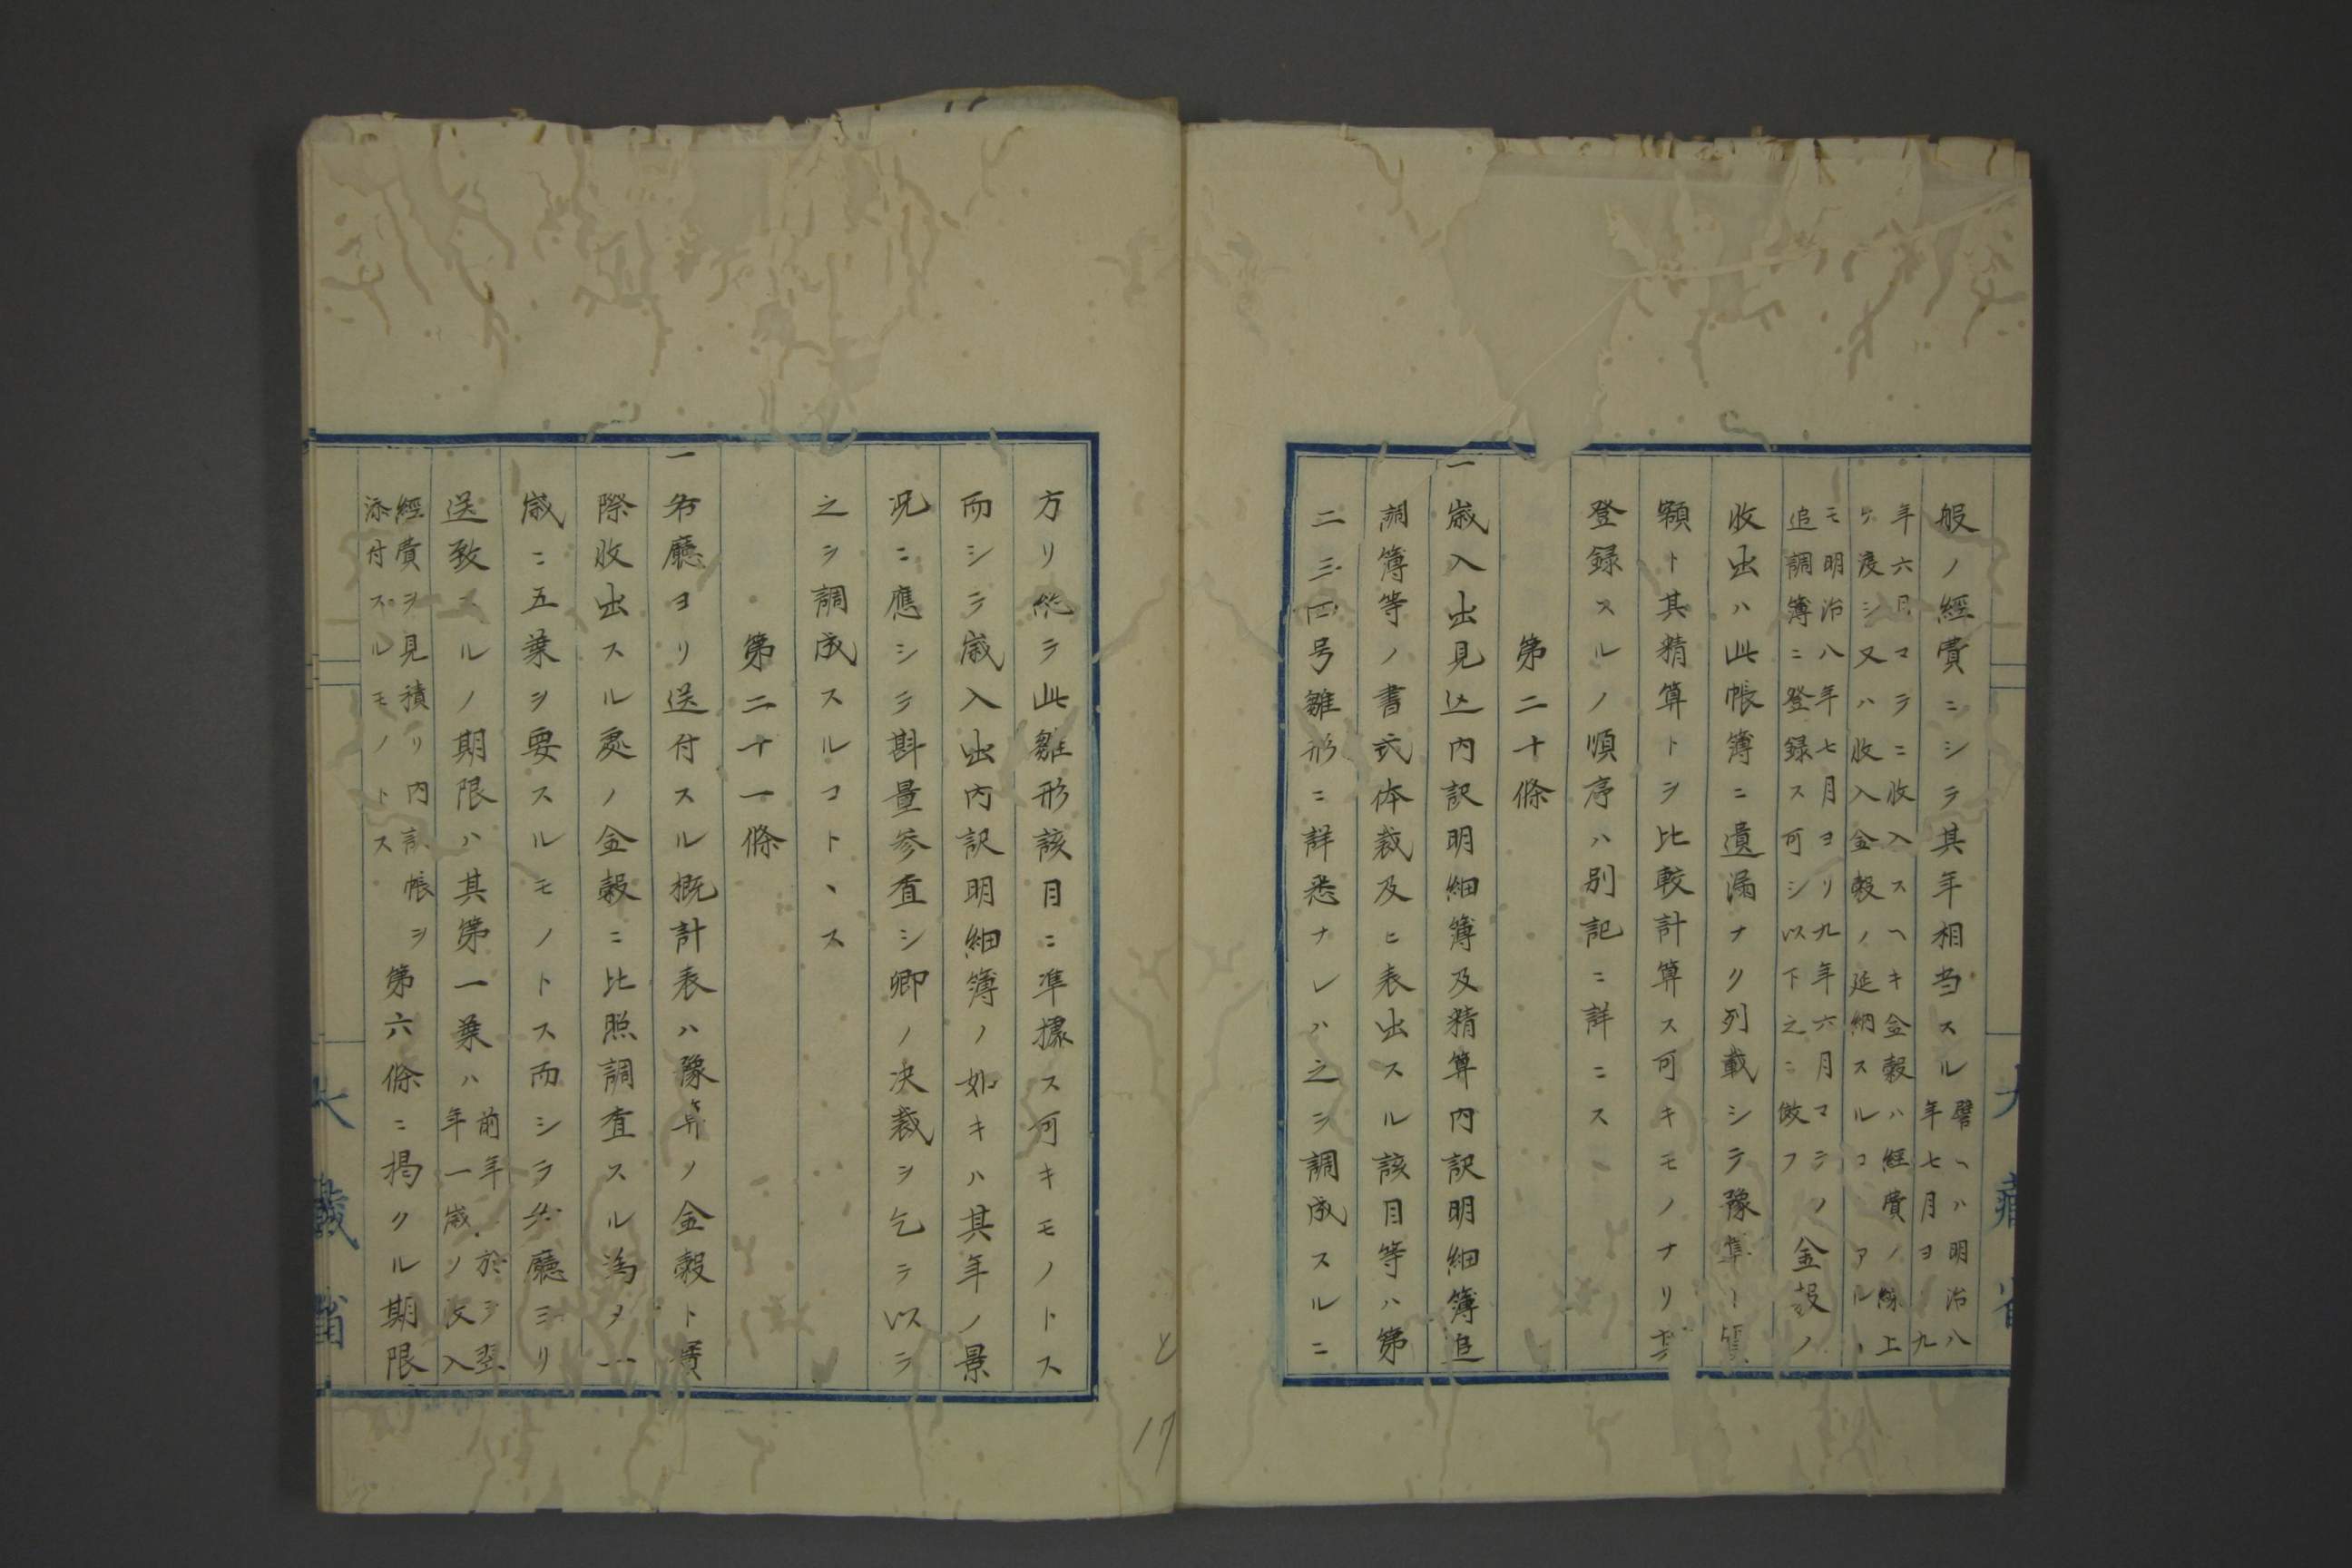 般ノ經費ニシテ其年相当スル譬ヘハ明治八
年七月ヨリ九
年六月マテニ收入スヘキ金穀ハ經費ノ
渡シ又ハ收入金穀ノ延納スルコアル
モ明治八年七月ヨリ九年六月マテノ
追調簿ニ登録ス可シ以下之ニ倣フ
金穀ノ
收出ハ此帳簿ニ遺漏ナク列載シテ豫
額ト其精算トヲ比較計算ス可キモノナリ
登録スルノ順序ハ別記ニ詳ニス
第二十條
一歳入出見込内訳明細簿及精算内訳明細簿追
調簿等ノ書式体裁及ヒ表出スル該目等ハ第
二三四号雛形ニ詳悉ナレハ之ヲ調成スルニ
方リ總テ此雛形該目ニ準據ス可キモノトス
而シテ歳入出内訳明細簿ノ如キハ其年ノ景
況ニ應シテ斟量参査シ卿ノ决裁ヲ乞テ以テ
之ヲ調成スルコトヽス
第二十一條
一各廳ヨリ送付スル概計表ハ豫算ノ金穀ト實
際收出スル處ノ金穀ニ比照調査スル為メ一
歳ニ五葉ヲ要スルモノトス而シテ各廳ヨリ
送致スルノ期限ハ其第一葉ハ前年ニ於テ翌
年一歳ノ收入
經費ヲ見積リ内訳帳ヲ
添付スルモノトス
第六條ニ掲クル期限
大藏省
大藏省
17